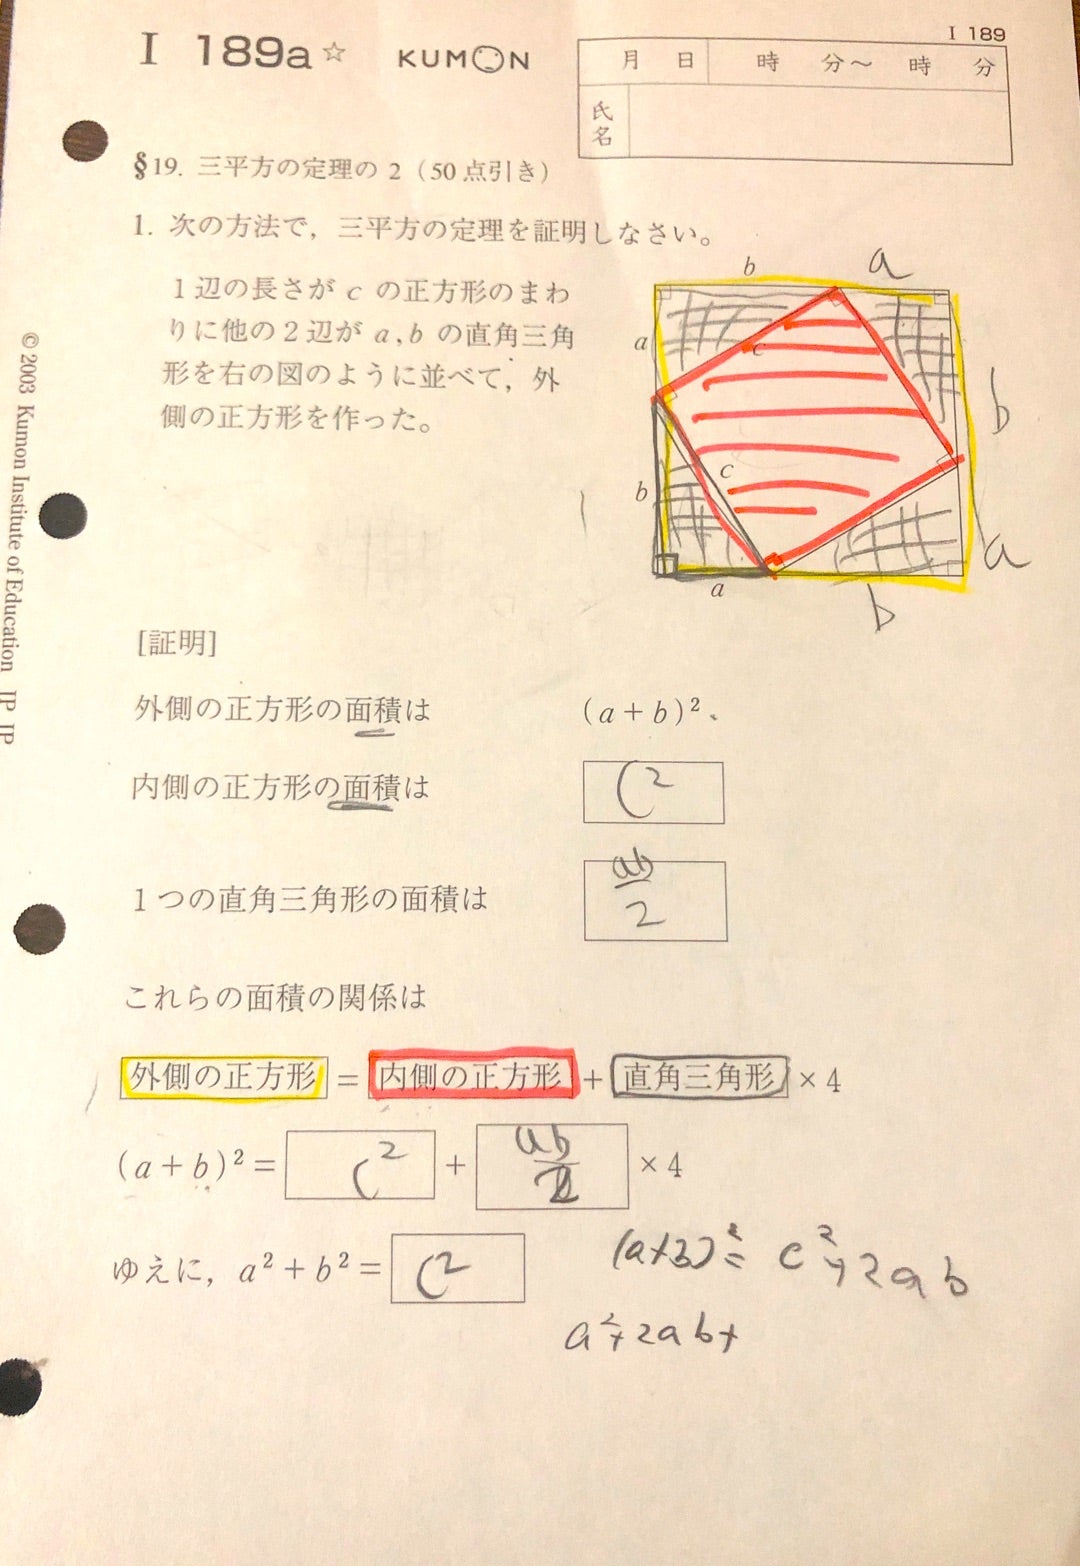 I 189a☆ KUMON
I 189
月 日 時 分〜 時 分
氏名
§19. 三平方の定理の2（50点引き）
1. 次の方法で，三平方の定理を証明しなさい。
1辺の長さが c の正方形のまわ
りに他の2辺が a,b の直角三角
形を右の図のように並べて，外
側の正方形を作った。
b a
a
c
b
b
c
a
a
b
© 2003 Kumon Institute of Education JP JP
[証明]
外側の正方形の面積は (a+b)²
内側の正方形の面積は c²
1つの直角三角形の面積は ab/2
これらの面積の関係は
外側の正方形 = 内側の正方形 + 直角三角形 ×4
(a+b)² = c² + ab/2 ×4
ゆえに，a²+b² = c²
(a+b)² = c²+2ab
a²+2ab+